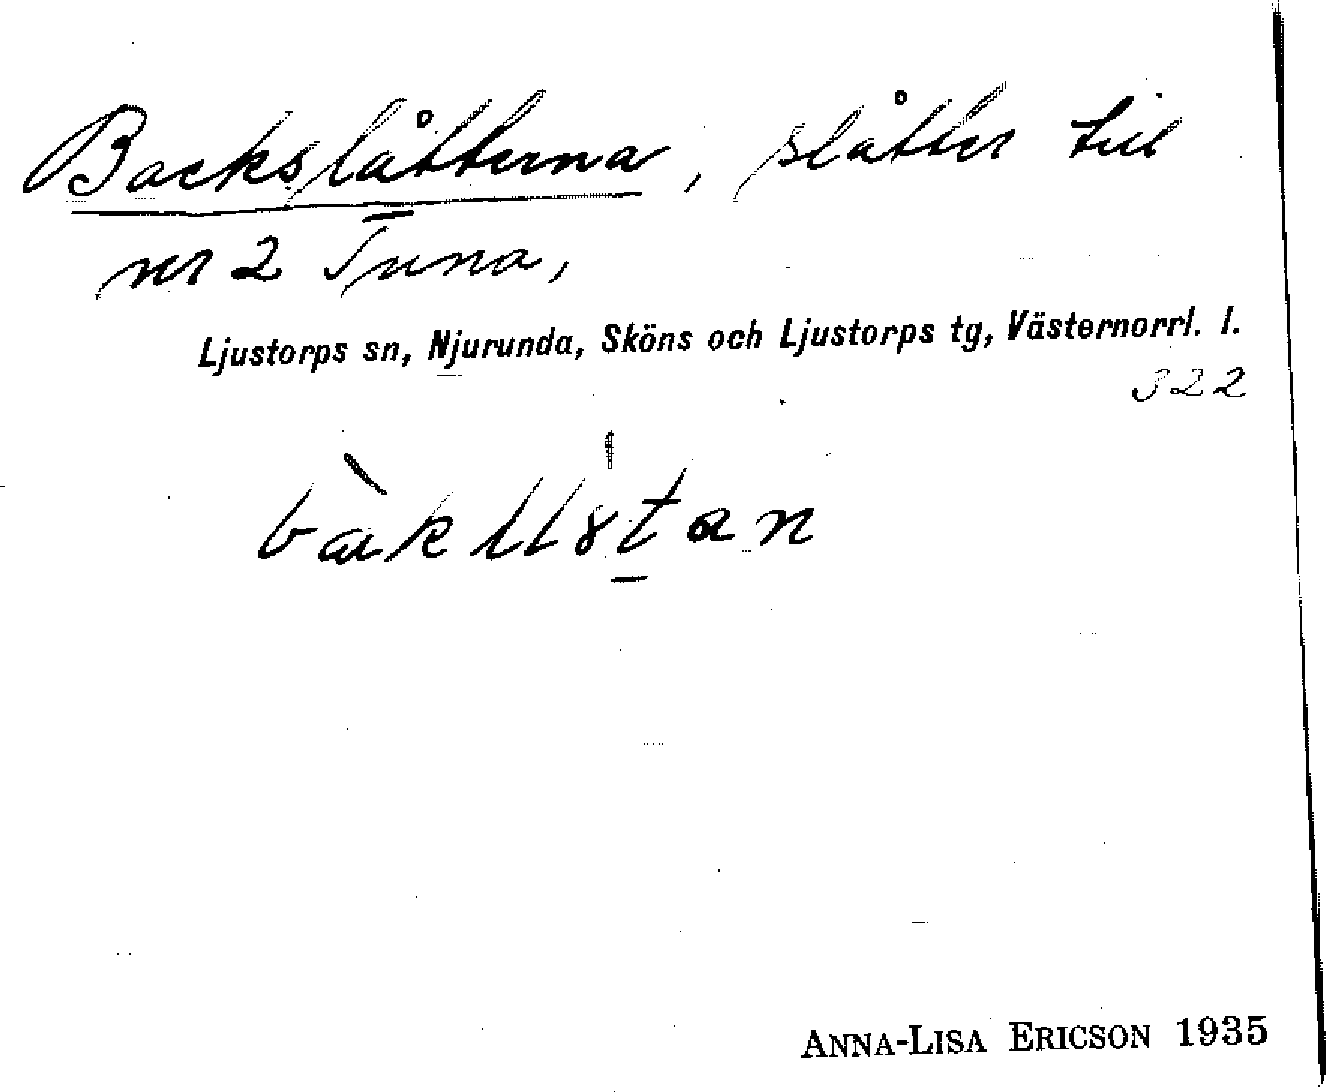 Backslåtterna, slåtter till
nr 2 Tuna,
Ljustorps sn, Njurunda, Sköns och Ljustorps tg, Västernorrl. l.
322
ANNA-LISA ERICSON 1935